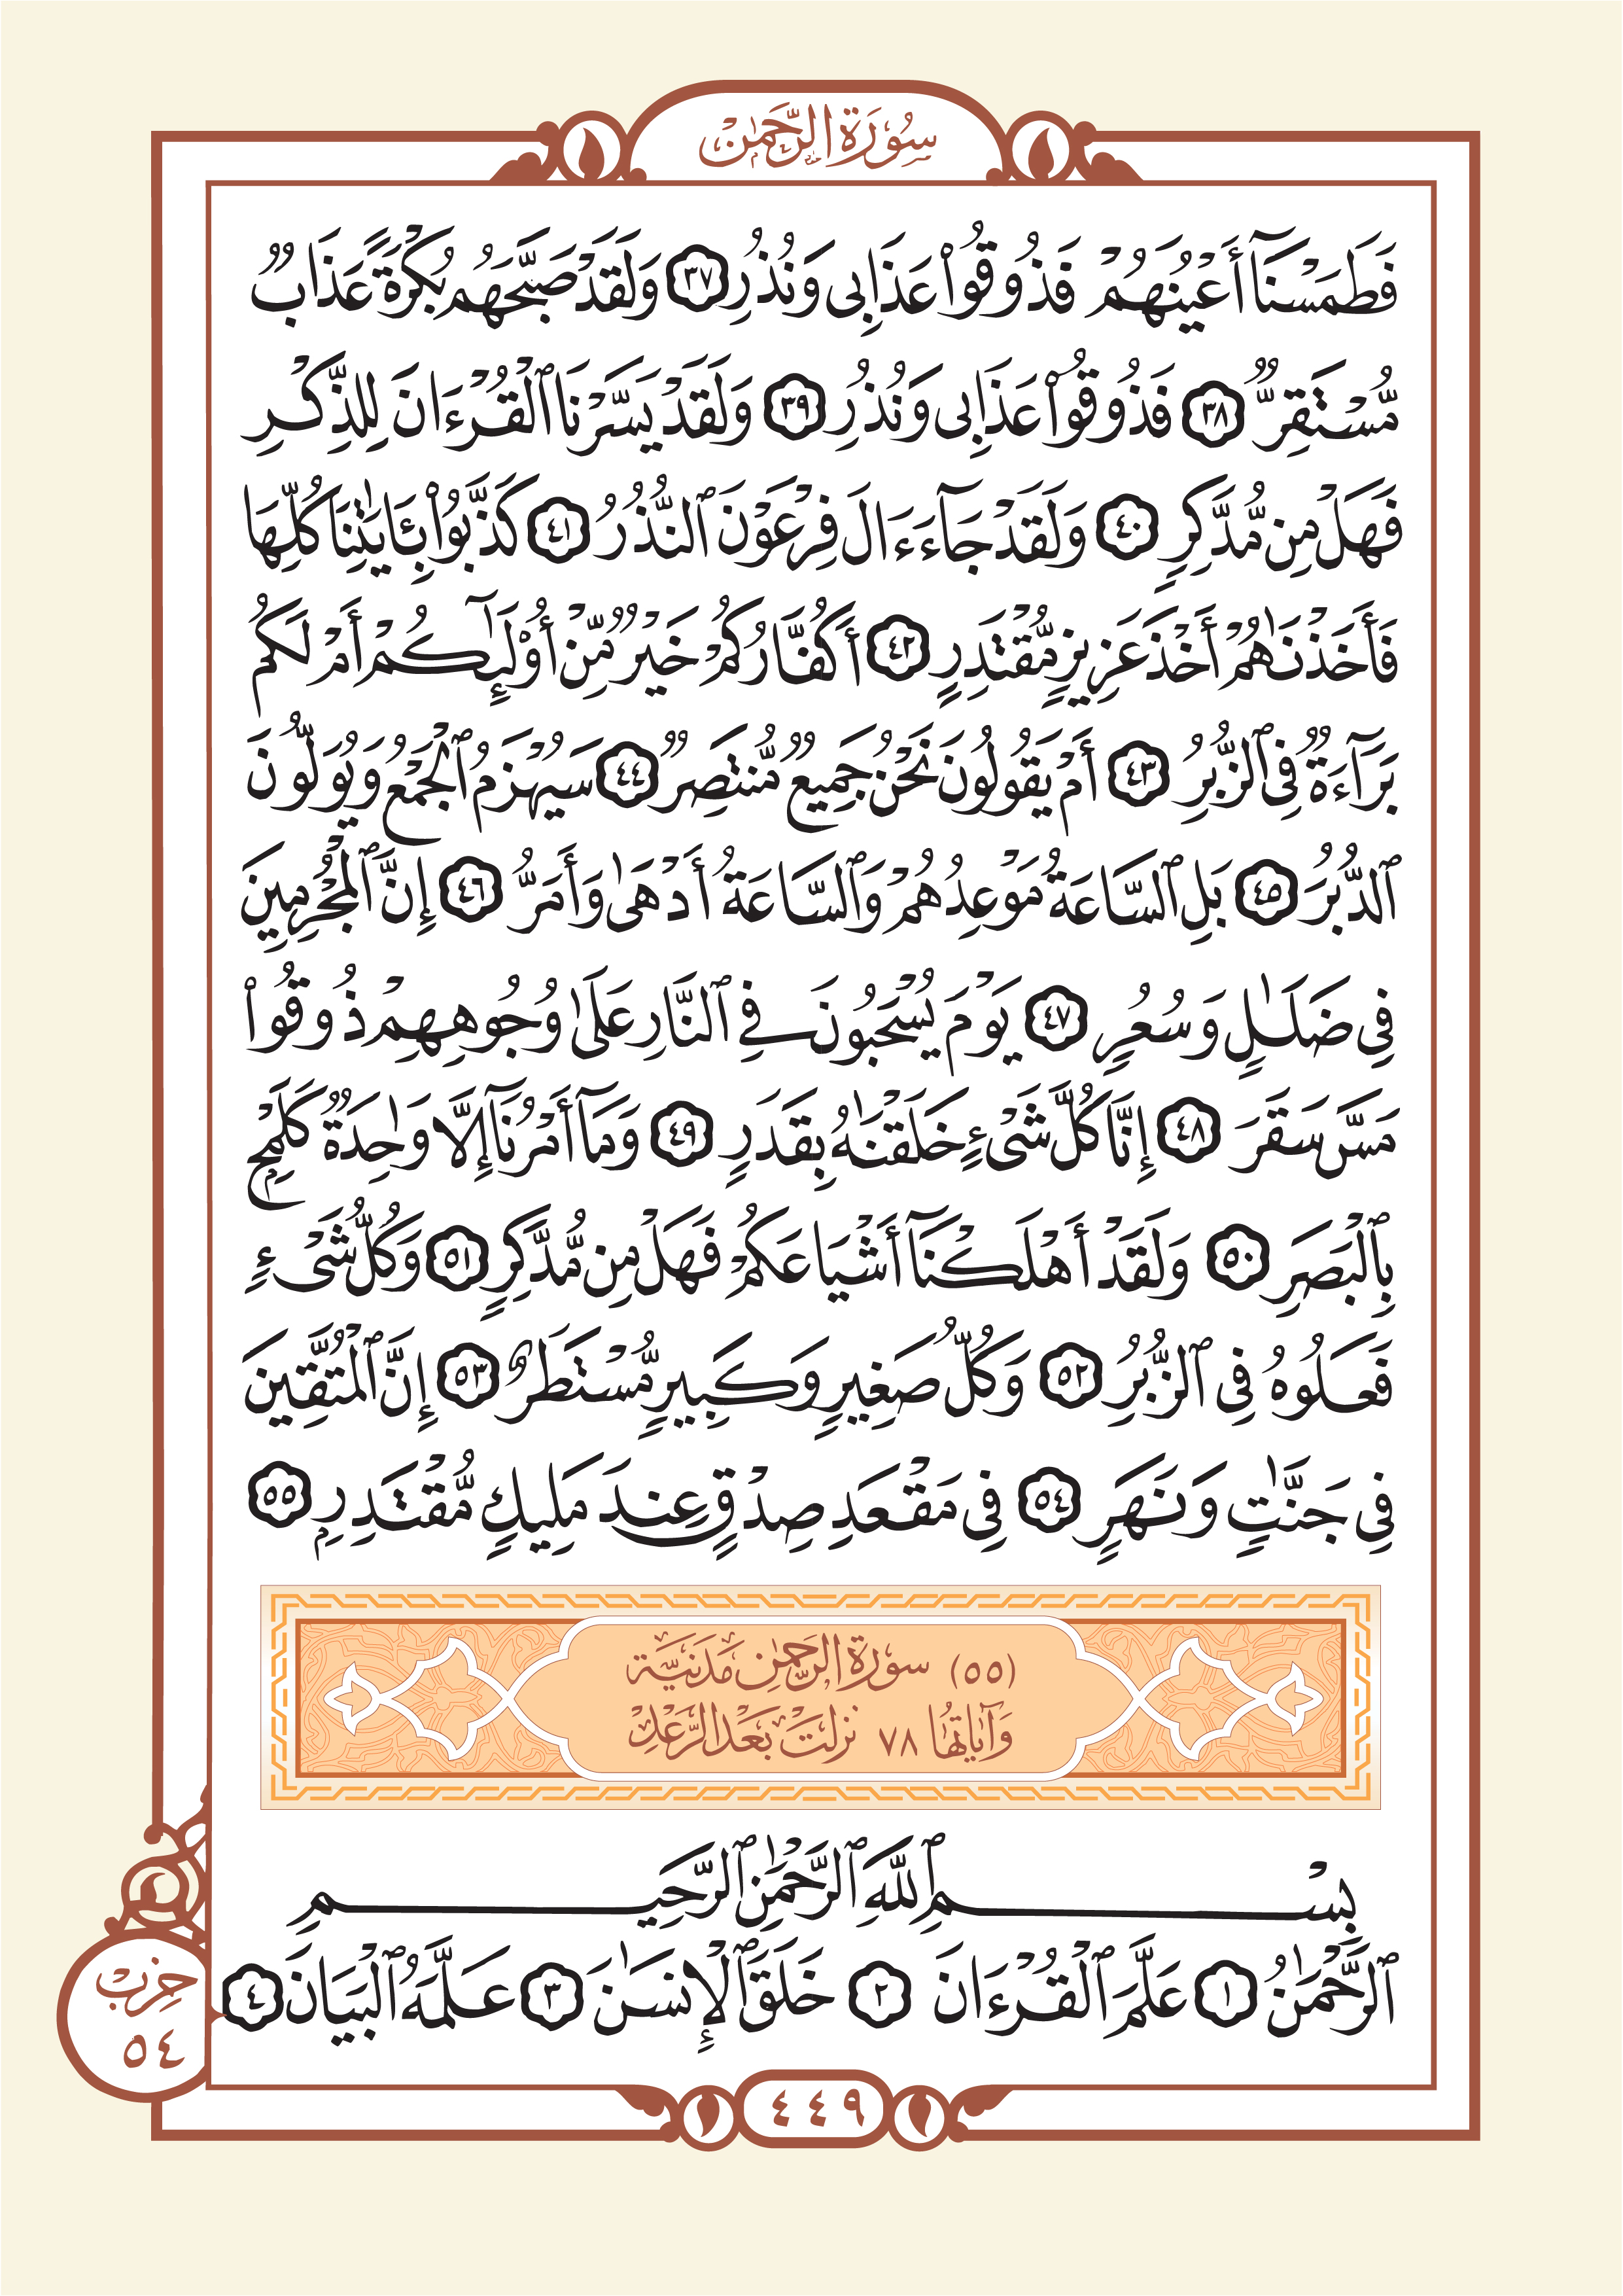 سُورَةُ الرَّحْمَٰن
فَطَمَسْنَآ أَعْيُنَهُمْ فَذُوقُوا۟ عَذَابِى وَنُذُرِ ٣٧ وَلَقَدْ صَبَّحَهُم بُكْرَةً عَذَابٌ
مُّسْتَقِرٌّ ٣٨ فَذُوقُوا۟ عَذَابِى وَنُذُرِ ٣٩ وَلَقَدْ يَسَّرْنَا ٱلْقُرْءَانَ لِلذِّكْرِ
فَهَلْ مِن مُّدَّكِرٍ ٤٠ وَلَقَدْ جَآءَ ءَالَ فِرْعَوْنَ ٱلنُّذُرُ ٤١ كَذَّبُوا۟ بِـَٔايَـٰتِنَا كُلِّهَا
فَأَخَذْنَـٰهُمْ أَخْذَ عَزِيزٍ مُّقْتَدِرٍ ٤٢ أَكُفَّارُكُمْ خَيْرٌ مِّنْ أُو۟لَـٰٓئِكُمْ أَمْ لَكُم
بَرَآءَةٌ فِى ٱلزُّبُرِ ٤٣ أَمْ يَقُولُونَ نَحْنُ جَمِيعٌ مُّنتَصِرٌ ٤٤ سَيُهْزَمُ ٱلْجَمْعُ وَيُوَلُّونَ
ٱلدُّبُرَ ٤٥ بَلِ ٱلسَّاعَةُ مَوْعِدُهُمْ وَٱلسَّاعَةُ أَدْهَىٰ وَأَمَرُّ ٤٦ إِنَّ ٱلْمُجْرِمِينَ
فِى ضَلَـٰلٍ وَسُعُرٍ ٤٧ يَوْمَ يُسْحَبُونَ فِى ٱلنَّارِ عَلَىٰ وُجُوهِهِمْ ذُوقُوا۟
مَسَّ سَقَرَ ٤٨ إِنَّا كُلَّ شَىْءٍ خَلَقْنَـٰهُ بِقَدَرٍ ٤٩ وَمَآ أَمْرُنَآ إِلَّا وَٰحِدَةٌ كَلَمْحٍۭ
بِٱلْبَصَرِ ٥٠ وَلَقَدْ أَهْلَكْنَآ أَشْيَاعَكُمْ فَهَلْ مِن مُّدَّكِرٍ ٥١ وَكُلُّ شَىْءٍ
فَعَلُوهُ فِى ٱلزُّبُرِ ٥٢ وَكُلُّ صَغِيرٍ وَكَبِيرٍ مُّسْتَطَرٌ ٥٣ إِنَّ ٱلْمُتَّقِينَ
فِى جَنَّـٰتٍ وَنَهَرٍ ٥٤ فِى مَقْعَدِ صِدْقٍ عِندَ مَلِيكٍ مُّقْتَدِرٍۭ ٥٥
(٥٥) سورة الرَّحمٰن مَدَنيَّة
وَآيَاتُهَا ٧٨ نزلتْ بَعْدَ الرَّعْدِ
بِسْمِ ٱللَّهِ ٱلرَّحْمَـٰنِ ٱلرَّحِيمِ
ٱلرَّحْمَـٰنُ ١ عَلَّمَ ٱلْقُرْءَانَ ٢ خَلَقَ ٱلْإِنسَـٰنَ ٣ عَلَّمَهُ ٱلْبَيَانَ ٤
حِزْبْ
٥٤
٤٤٩